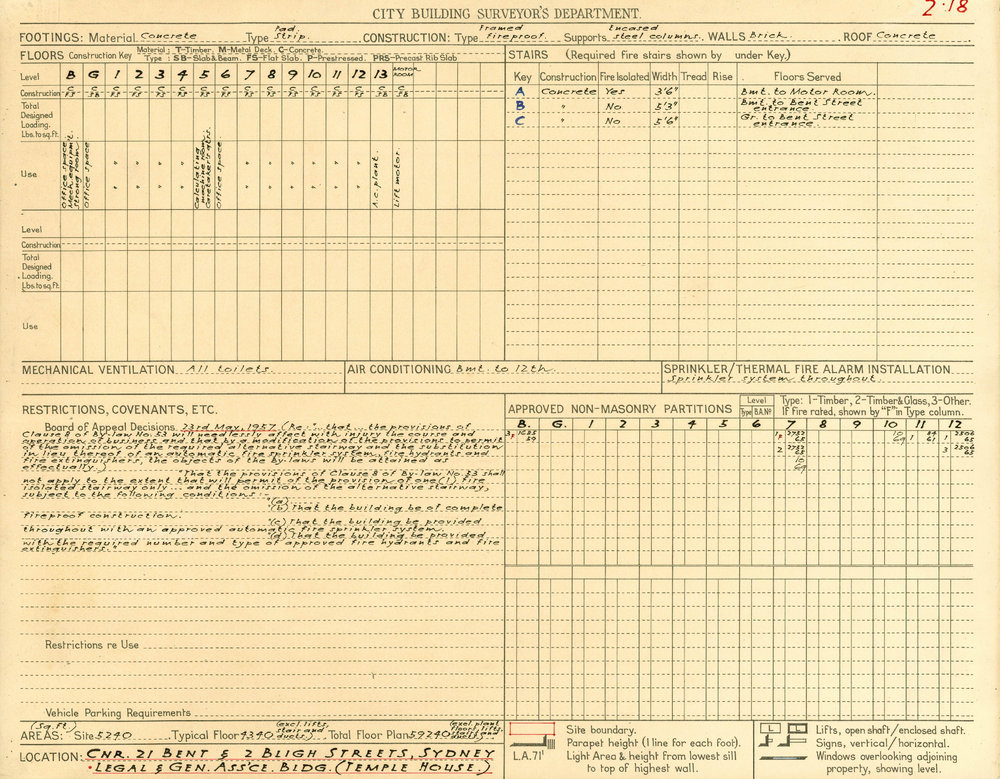 CITY BUILDING SURVEYOR'S DEPARTMENT.
2·18
FOOTINGS: Material Concrete Type Pad Strip. CONSTRUCTION: Type Framed Fireproof. Supports Encased steel columns. WALLS Brick. ROOF Concrete
FLOORS Construction Key Material; T-Timber. M-Metal Deck. C-Concrete.
Type: SB-Slab & Beam. FS-Flat Slab. P-Prestressed. PRS-Precast Rib Slab
Level B G 1 2 3 4 5 6 7 8 9 10 11 12 13 MOTOR ROOM
Construction C FS C SB C FS C FS C FS C FS C FS C FS C FS C FS C FS C FS C FS C FS C FS C SB
Total
Designed
Loading.
Lbs. to sq. ft.
Use
Office space
Mech. equipmt.
Strong room
Office space
" " " "
Calculating
machine room
Caretaker's qtrs.
Office space
" " " " " "
A.c. plant.
Lift motor.
Level
Construction
Total
Designed
Loading.
Lbs. to sq. ft.
Use
STAIRS (Required fire stairs shown by under Key.)
Key Construction Fire Isolated Width Tread Rise Floors Served
A Concrete Yes 3'6" Bmt. to Motor Room.
B " No 5'3" Bmt. to Bent Street entrance.
C " No 5'6" Gr. to Bent Street entrance.
MECHANICAL VENTILATION All toilets.
AIR CONDITIONING Bmt. to 12th.
SPRINKLER/THERMAL FIRE ALARM INSTALLATION
Sprinkler system throughout.
RESTRICTIONS, COVENANTS, ETC.
Board of Appeal Decisions 23rd May, 1957 (Re:- "that ... the provisions of
Clause 8 of By-law No. 53 will needlessly affect with injury the course and
operation of business and that by a modification of the provisions to permit
of the omission of the required alternative stairway and the substitution
in lieu thereof of an automatic fire sprinkler system, fire hydrants and
fire extinguishers, the objects of the by-laws will be attained as
effectually.)
"That the provisions of Clause 8 of By-law No. 53 shall
not apply to the extent that will permit of the provision of one (1) fire
isolated stairway only ... and the omission of the alternative stairway,
subject to the following conditions:-
"(a) ......
"(b) That the building be of complete
fireproof construction.
"(c) That the building be provided
throughout with an approved automatic fire sprinkler system.
"(d) That the building be provided
with the required number and type of approved fire hydrants and fire
extinguishers."
Restrictions re Use
Vehicle Parking Requirements
APPROVED NON-MASONRY PARTITIONS
Level
Type B.A. Nº
Type: 1-Timber, 2-Timber & Glass, 3-Other.
If Fire rated, shown by "F" in Type column.
B. G. 1 2 3 4 5 6 7 8 9 10 11 12
3F 1585 59
1F 2752 65
10 69
1 84 61
1 2506 65
2 2752 65
3 2506 65
10 69
(Sq. ft.)
AREAS: Site 5240 Typical Floor 4340 (excl. lifts, stair and ducts) Total Floor Plan 59240
LOCATION: CNR. 21 BENT & 2 BLIGH STREETS, SYDNEY
"LEGAL & GEN. ASS'CE. BLDG. (TEMPLE HOUSE.)
Site boundary.
Parapet height (1 line for each foot).
L.A. 71' Light Area & height from lowest sill
to top of highest wall.
Lifts, open shaft/enclosed shaft.
Signs, vertical/horizontal.
Windows overlooking adjoining
property, showing level.